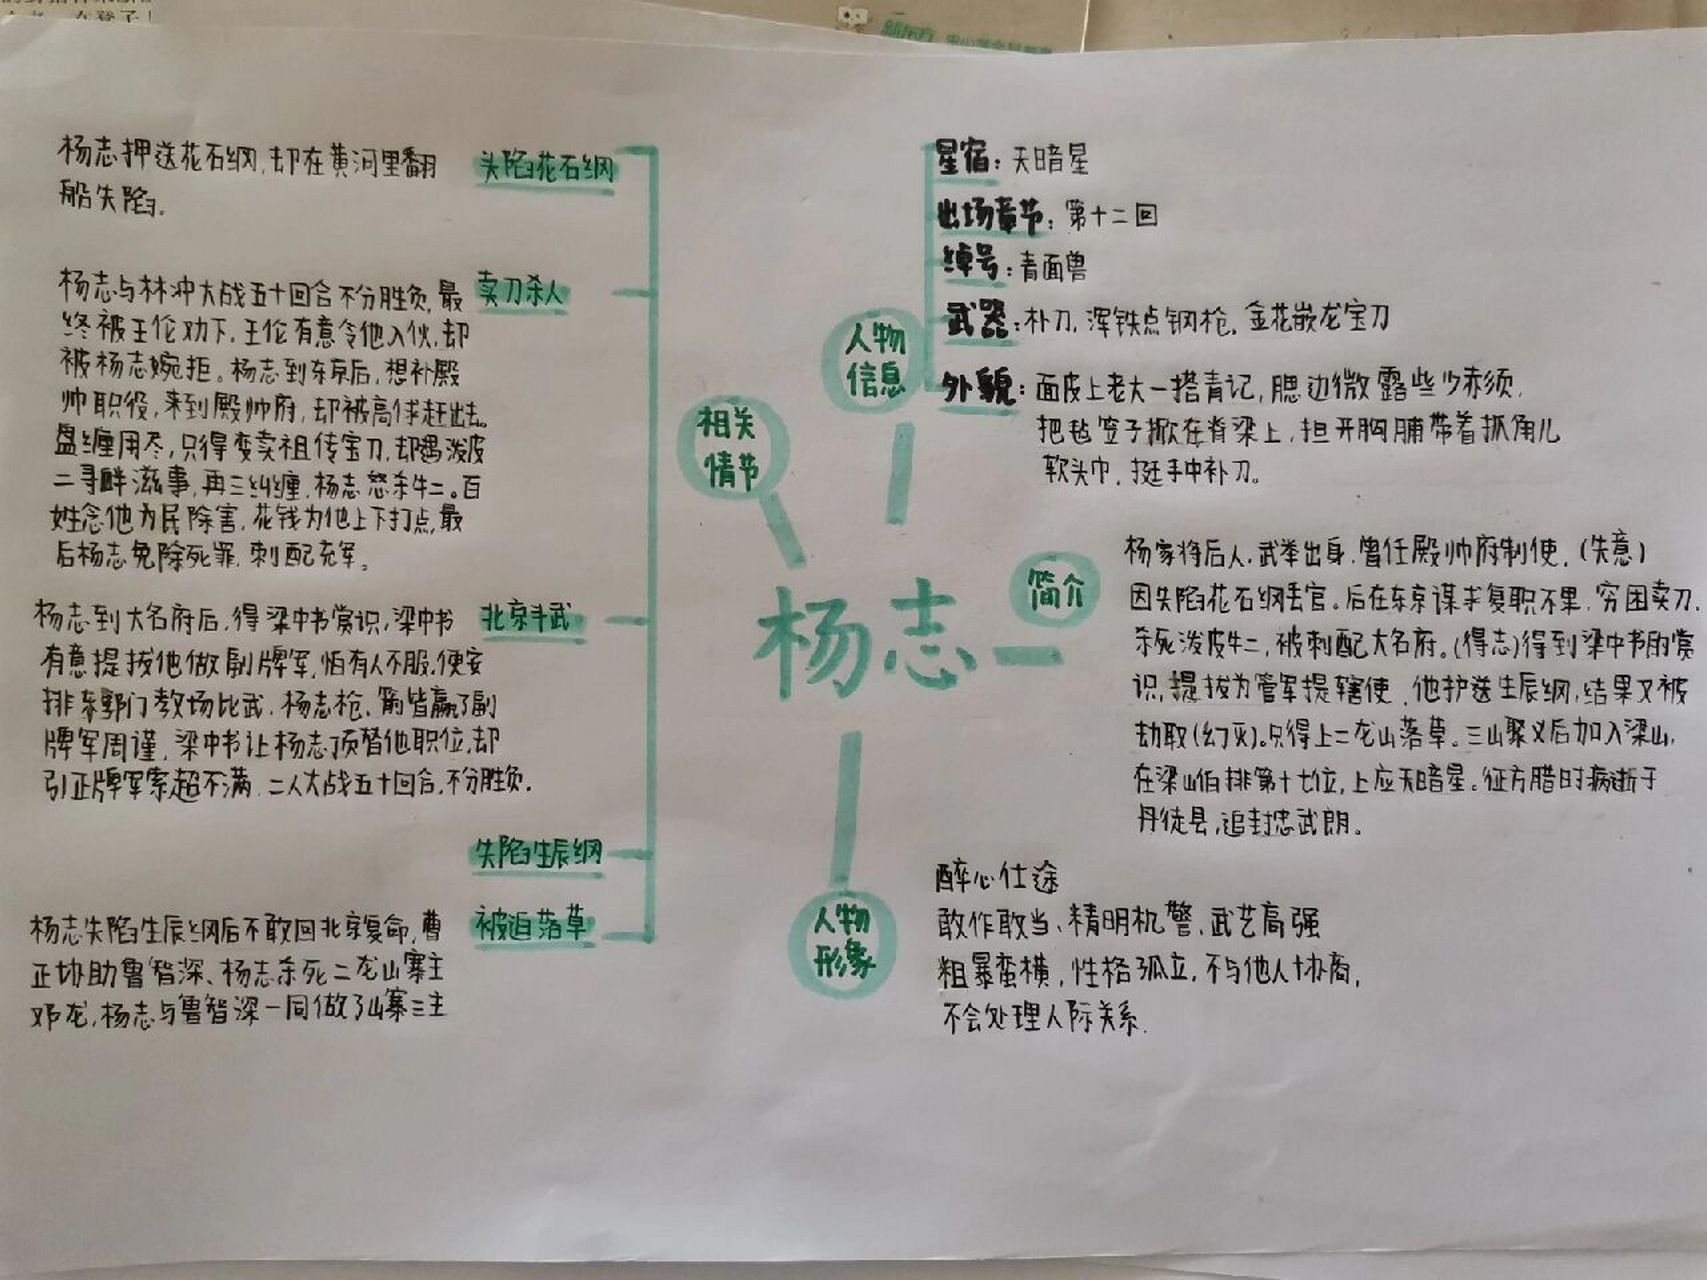 杨志
相关
情节
头陷花石纲
杨志押送花石纲,却在黄河里翻
船失陷。
卖刀杀人
杨志与林冲大战五十回合不分胜负,最
终被王伦劝下,王伦有意令他入伙,却
被杨志婉拒。杨志到东京后,想补殿
帅职役,来到殿帅府,却被高俅赶出去。
盘缠用尽,只得变卖祖传宝刀,却遇泼皮
二寻衅滋事,再三纠缠,杨志怒杀牛二。百
姓念他为民除害,花钱为他上下打点,最
后杨志免除死罪,刺配充军。
北京斗武
杨志到大名府后,得梁中书赏识,梁中书
有意提拔他做副牌军,怕有人不服,便安
排东郭门教场比武,杨志枪、箭皆赢了副
牌军周谨,梁中书让杨志顶替他职位,却
引正牌军索超不满,二人大战五十回合,不分胜负.
失陷生辰纲
被迫落草
杨志失陷生辰纲后不敢回北京复命,曹
正协助鲁智深、杨志杀死二龙山寨主
邓龙,杨志与鲁智深一同做了山寨之主
人物
信息
星宿:天暗星
出场章节:第十二回
绰号:青面兽
武器:朴刀,浑铁点钢枪,金花嵌龙宝刀
外貌:面皮上老大一搭青记,腮边微露些少赤须,
把毡笠子掀在脊梁上,担开胸脯带着抓角儿
软头巾,挺手中补刀。
简介
杨家将后人,武举出身,曾任殿帅府制使,(失意)
因失陷花石纲丢官。后在东京谋求复职不果,穷困卖刀,
杀死泼皮牛二,被刺配大名府。(得志)得到梁中书的赏
识,提拔为管军提辖使,他护送生辰纲,结果又被
劫取(幻灭)。只得上二龙山落草。三山聚义后加入梁山,
在梁山伯排第十七位,上应天暗星。征方腊时病逝于
丹徒县,追封忠武朗。
人物
形象
醉心仕途
敢作敢当、精明机警、武艺高强
粗暴蛮横,性格孤立,不与他人协商,
不会处理人际关系.